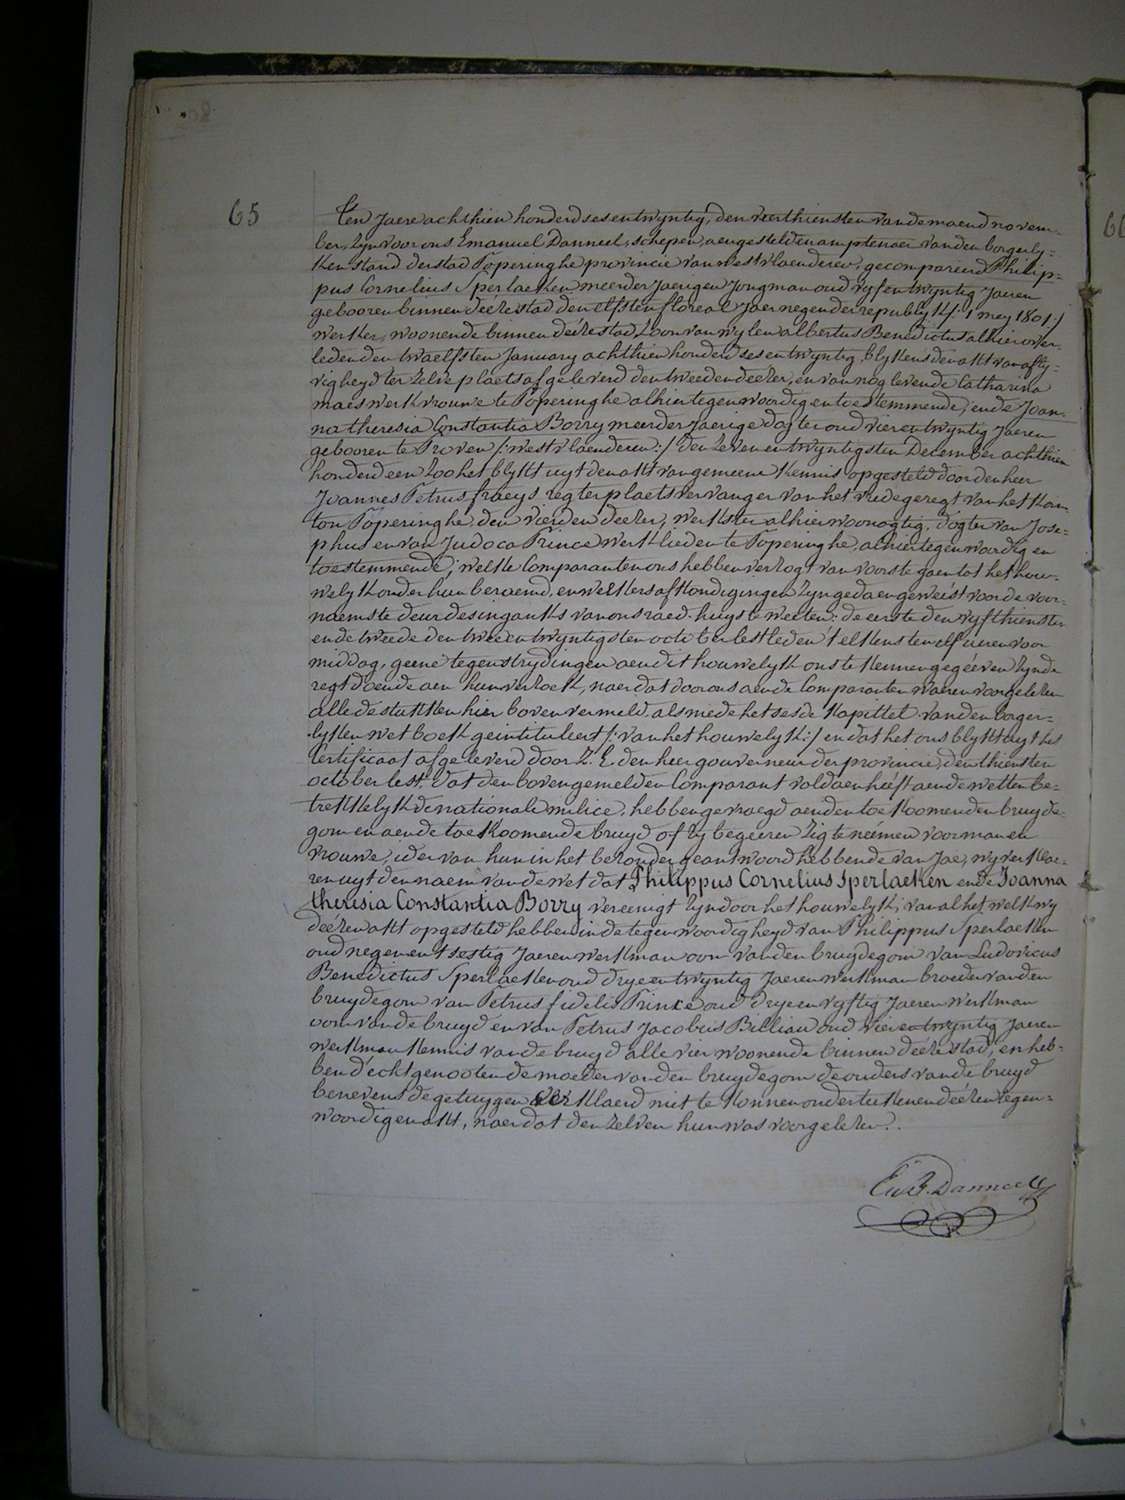 65
Ten Jaere achthien honderd sesentwyntig, den veerthiensten van de maend novem-
ber, zyn voor ons Emanuel Danneel, schepen, aengesteld en amptenaer van den borgerly-
ken stand der stad Poperinghe provincie van westvlaenderen, gecompareerd Philip-
pus Cornelius Sperlaeken meerderjaerigen Jongman oud vyfentwyntig Jaeren
gebooren binnen deéze stad den elfsten floreal Jaer negen der republyk /: 1 mey 1801:/
werker, woonende binnen deéze stad, zoon van wylen albertus Benedictus alhier over-
leden den twaelfsten January achthien honderd sesentwyntig, blykens den akt van afly-
vigheyd ter zelve plaets afgeleverd den tweeden deezer, en van nog levende Catharina
maes werkvrouwe te Poperinghe alhier tegenwoordig en toestemmende, ende Joan-
na theresia Constantia Borry meerderjaerige dogter oud vierentwyntig Jaeren
gebooren te Proven /: westvlaenderen:/ den zevenentwyntigsten December achthien
honderd een zoo het blykt uyt den akt van gemeene kennis opgesteld door den heer
Joannes Petrus fraeys regter plaetsvervanger van het vredegeregt van het kan-
ton Poperinghe den vierden deezer, werkster alhier woonagtig, dogter van Jose-
phus en van Judoca Prince werklieden te Poperinghe, alhier tegenwoordig en
toestemmende; welke Comparanten ons hebben verzogt van voorts te gaen tot het hou-
welyk onder hun beraemd, en welkers afkondigingen zyn gedaen geweést voor de voor-
naemste deur des ingangs van ons raed-huys te weeten: de eerste den vyfthiensten
ende tweede den tweeentwyntigsten october lestleden telkens ten elf ueren voor
middag, geene tegenstrydingen aen dit houwelyk ons te kennen gegéeven zynde
regt doende aen hun verzoek, naer dat door ons aen de Comparanten waeren voorgelezen
alle de stukken hier boven vermeld, alsmede het sesde kapittel van den borger-
lyken wetboek geintituleert /: van het houwelyk:/ en dat het ons blykt uyt het
Certificaet afgeleverd door Z. E. den heer gouverneur der provincie, den thiensten
october lest. dat den bovengemelden Comparant voldaen heéft aen de wetten be-
trekkelyk de nationale milice, hebben gevraegd aen den toekoomenden bruyde-
gom en aen de toekoomende bruyd of zy begeeren zig te neemen voor man en
vrouwe, ider van hun in het bezonder geantwoord hebbende van Jae, wy verklae-
ren uyt den naem van de wet dat Philippus Cornelius Sperlaeken ende Joanna
theresia Constantia Borry vereenigt zyn door het houwelyk, van al het welk wy
deézen akt opgesteld hebben in de tegenwoordigheyd van Philippus Sperlaeken
oud negenentsestig Jaeren werkman oom van den bruydegom van Ludovicus
Benedictus Sperlaeken oud dryeentwyntig Jaeren werkman broeder van den
bruydegom van Petrus fidelis Prince oud dryeenvyftig Jaeren werkman
oom van de bruyd en van Petrus Jacobus Billiau oud vierentwyntig Jaeren
werkman kennis van de bruyd alle vier woonende binnen deéze stad, en heb-
ben d'echtgenooten de moeder van den bruydegom de ouders van de bruyd
benevens de getuygen verklaerd niet te konnen onderteekenen deézen tegen-
woordigen akt, naer dat den zelven hun was voorgelezen.
Em. Danneel